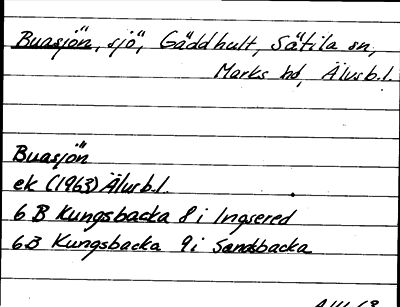 Buasjön, sjö, Gäddhult, Sätila sn,
Marks hd, Älvsb.l.
Buasjön
ek (1963) Älvsb.l.
6 B Kungsbacka 8 i Ingsered
6B Kungsbacka 9i Sandbacka